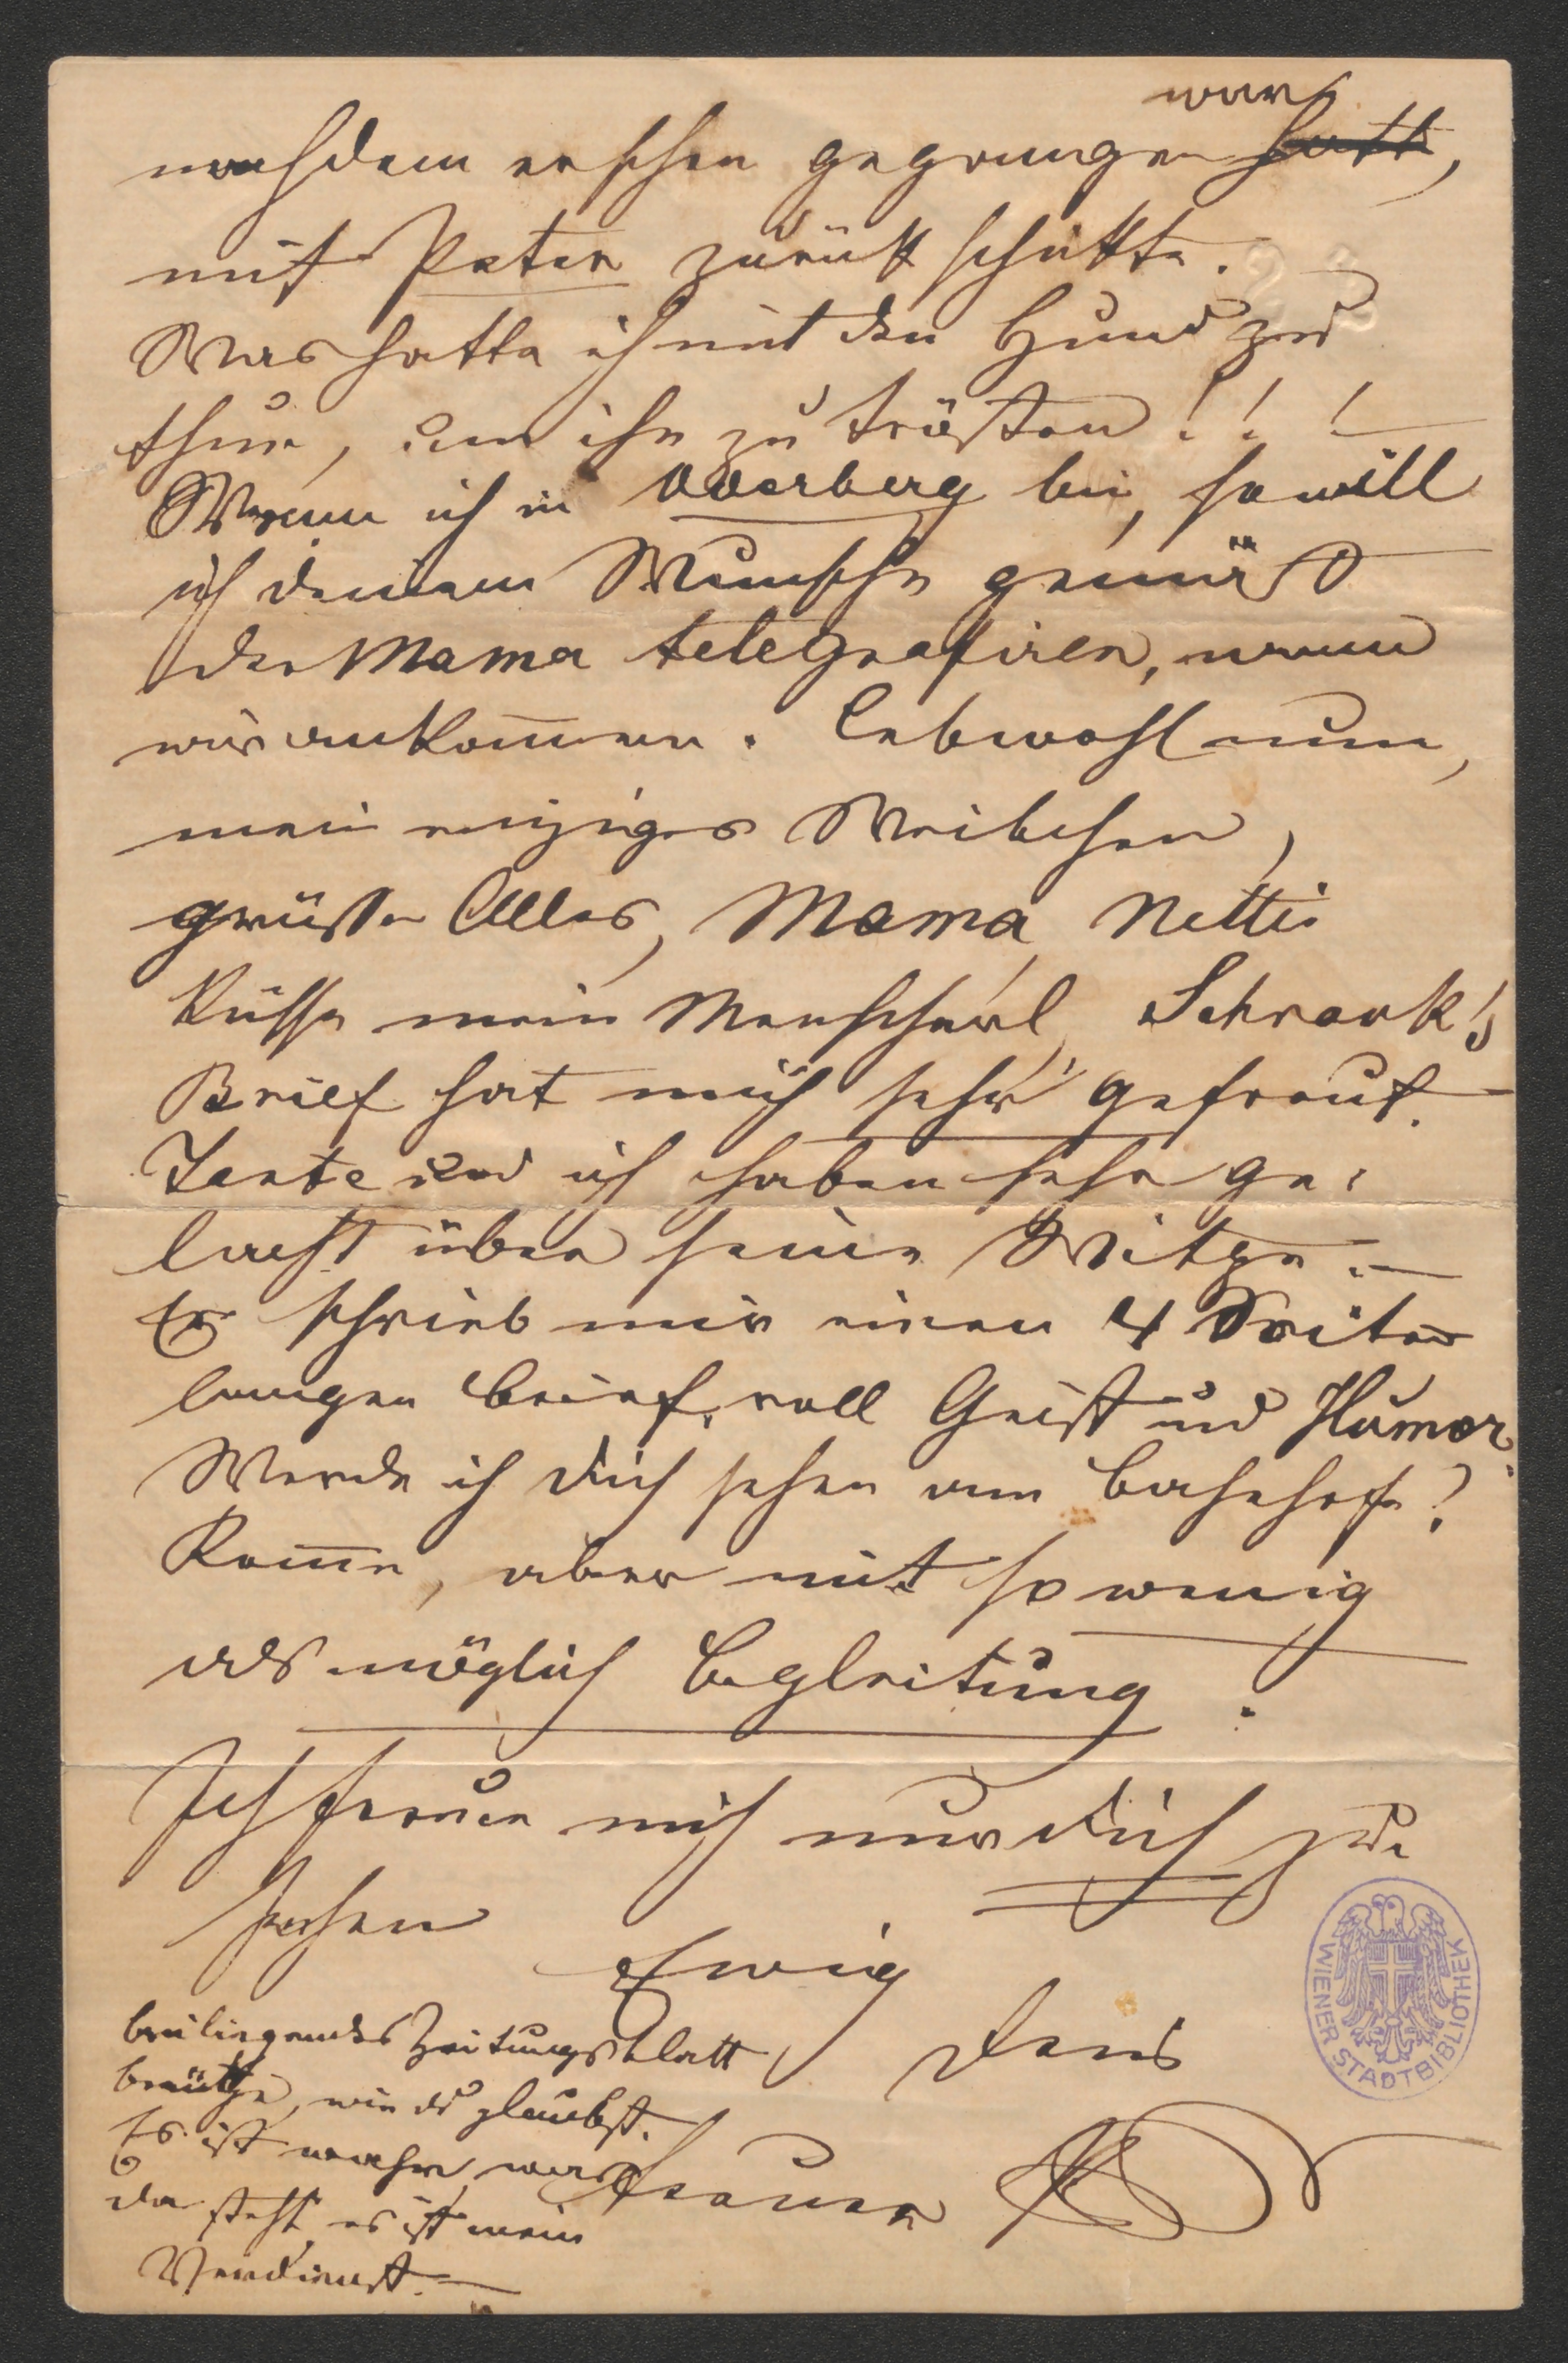 war
nachdem er schon gegangen hatt,
mit Peter zurück schickte.
Was hatte ich mit den Hund zu
thun, um ihn zu trösten!!!
Wenn ich in Oderberg bin, so will
ich deinem Wunsche gemäß
der Mama telegrafiren, wenn
wir ankom̄en. Lebwohl nun,
mein einziges Weibchen,
grüße Alles, Mama, Netti
Küsse mein Menscherl, Schrank's
Brief hat mich sehr gefreut.
Tante und ich haben sehr ge-
lacht über seine Witze. —
Er schrieb mir einen 4 Seiten
langen Brief, voll Geist und Humor.
Werde ich dich sehen am Bahnhofe?
Kom̄e, aber mit so wenig
als möglich Begleitung.
Ich freue mich nur dich zu
sehen
Ewig
Dein
treuer
beiliegendes Zeitungsblatt
benütze, wie du glaubst.
Es ist wahr, was
da steht, es ist mein
Verdienst. —
WIENER STADTBIBLIOTHEK